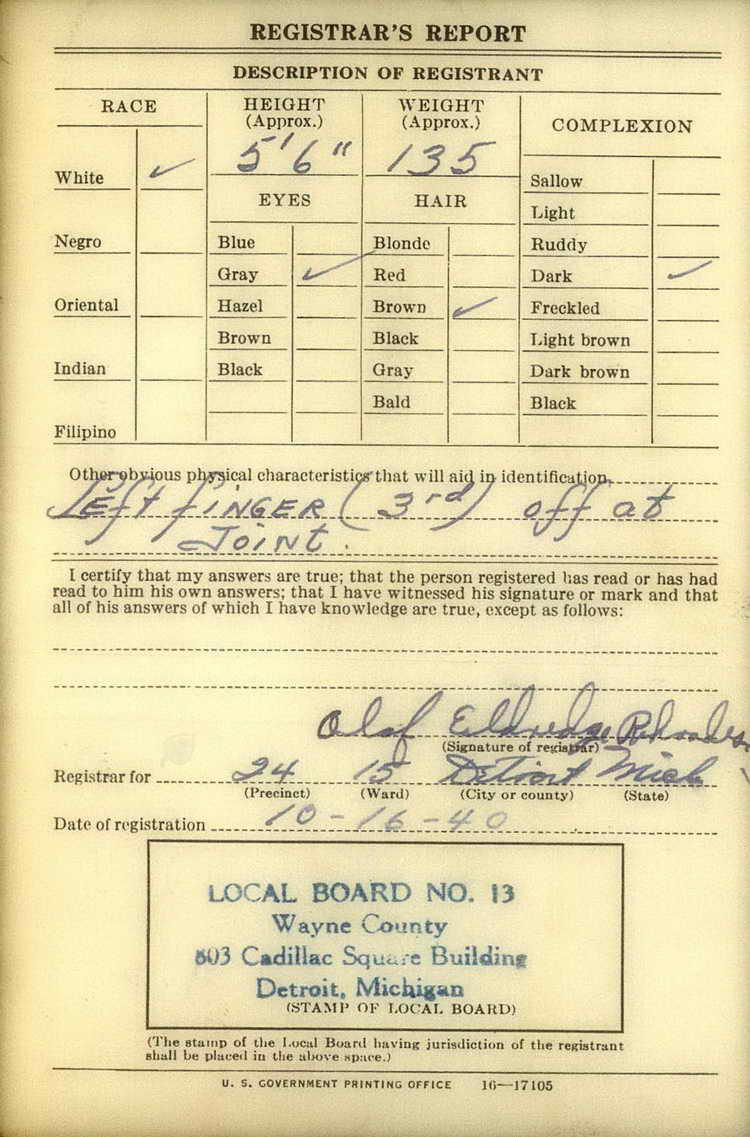 REGISTRAR'S REPORT
DESCRIPTION OF REGISTRANT
RACE
HEIGHT
(Approx.)
WEIGHT
(Approx.)
COMPLEXION
5'6"
135
White ✓
EYES
HAIR
Sallow
Light
Negro
Blue
Blonde
Ruddy
Gray ✓
Red
Dark ✓
Oriental
Hazel
Brown ✓
Freckled
Brown
Black
Light brown
Indian
Black
Gray
Dark brown
Bald
Black
Filipino
Other obvious physical characteristics that will aid in identification
Left finger (3rd) off at
Joint.
I certify that my answers are true; that the person registered has read or has had
read to him his own answers; that I have witnessed his signature or mark and that
all of his answers of which I have knowledge are true, except as follows:
Olaf Eldredge Rhoades
(Signature of registrar)
Registrar for 24 15 Detroit Mich
(Precinct) (Ward) (City or county) (State)
Date of registration 10-16-40
LOCAL BOARD NO. 13
Wayne County
803 Cadillac Square Building
Detroit, Michigan
(STAMP OF LOCAL BOARD)
(The stamp of the Local Board having jurisdiction of the registrant
shall be placed in the above space.)
U. S. GOVERNMENT PRINTING OFFICE 16—17105